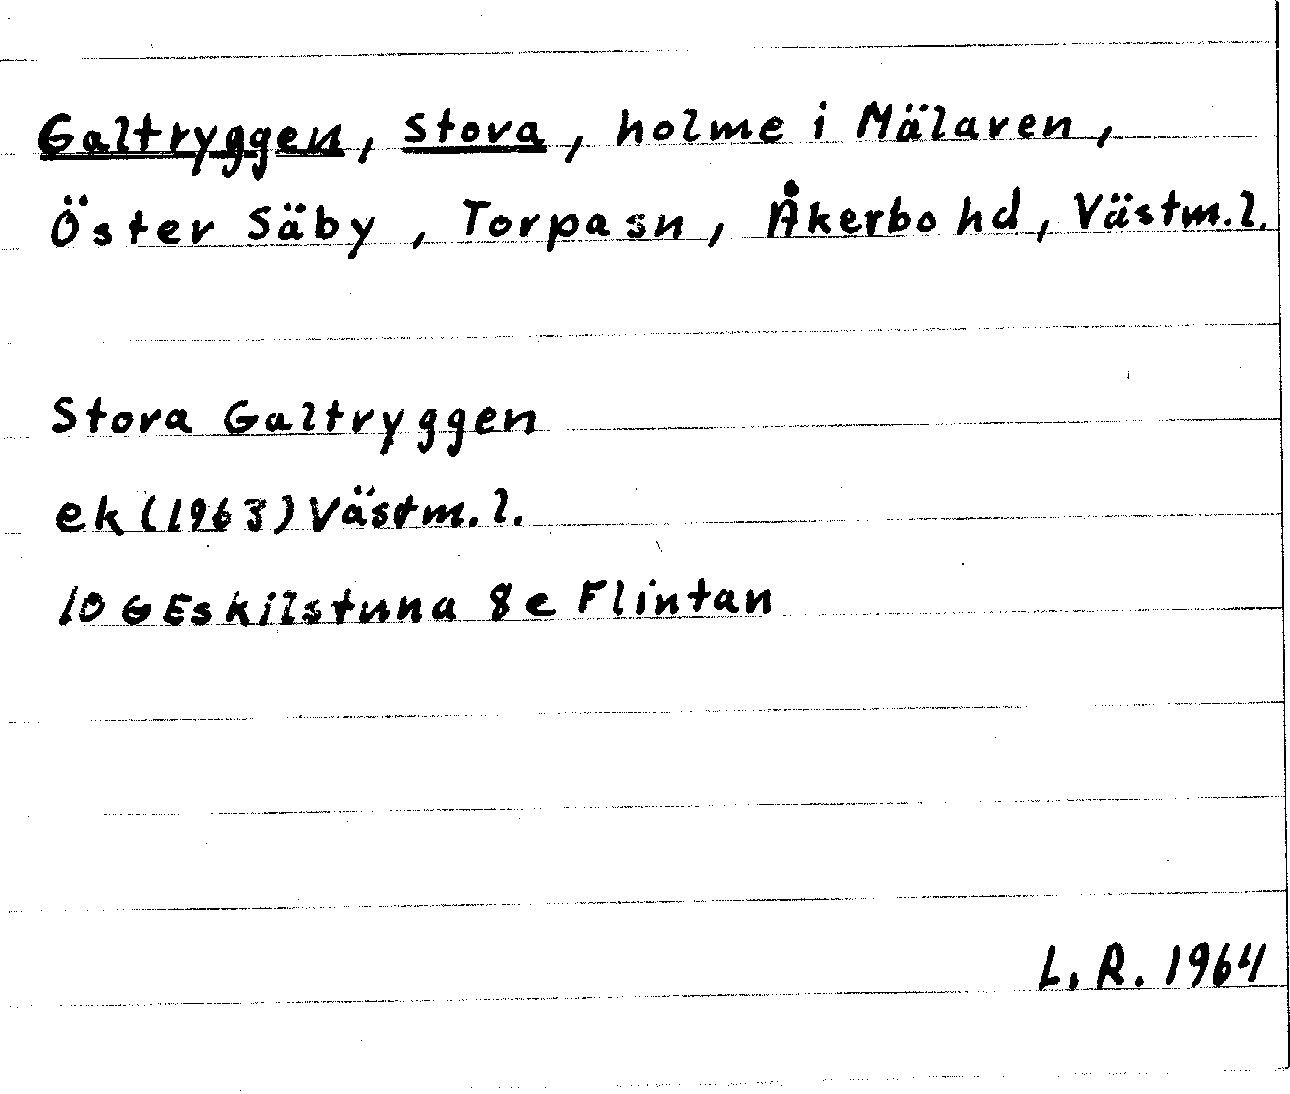 Galtryggen, Stora, holme i Mälaren,
Öster Säby, Torpasn, Åkerbo hd, Västm.l.
Stora Galtryggen
ek (1963) Västm.l.
10 G Eskilstuna 8e Flintan
L.R. 1964